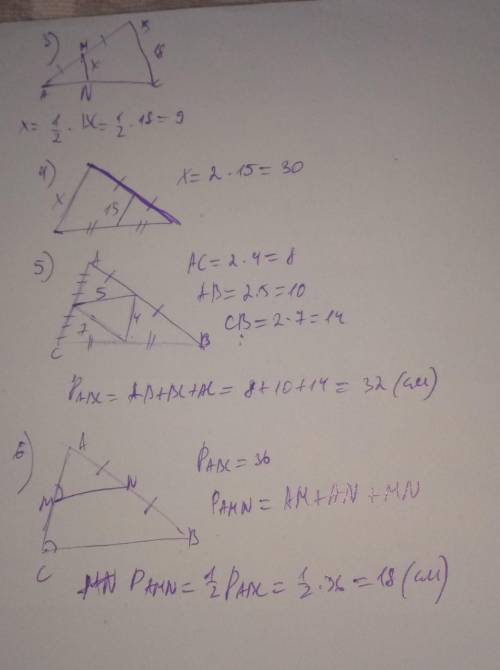 3)
B
M
x
18
A
N
C
x = 1/2 · BC = 1/2 · 18 = 9
4)
x
15
x = 2 · 15 = 30
5)
A
5
4
7
C
B
AC = 2 · 4 = 8
AB = 2 · 5 = 10
CB = 2 · 7 = 14
P ABC = AB + BC + AC = 8 + 10 + 14 = 32 (см)
6)
A
M
N
B
C
P ABC = 36
P AMN = AM + AN + MN
P AMN = 1/2 P ABC = 1/2 · 36 = 18 (см)